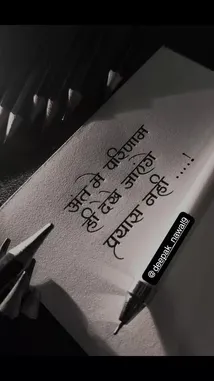 अंत में परिणाम
ही देखे जाएंगे
प्रयास नहीं ....!
@deepak_nawal9